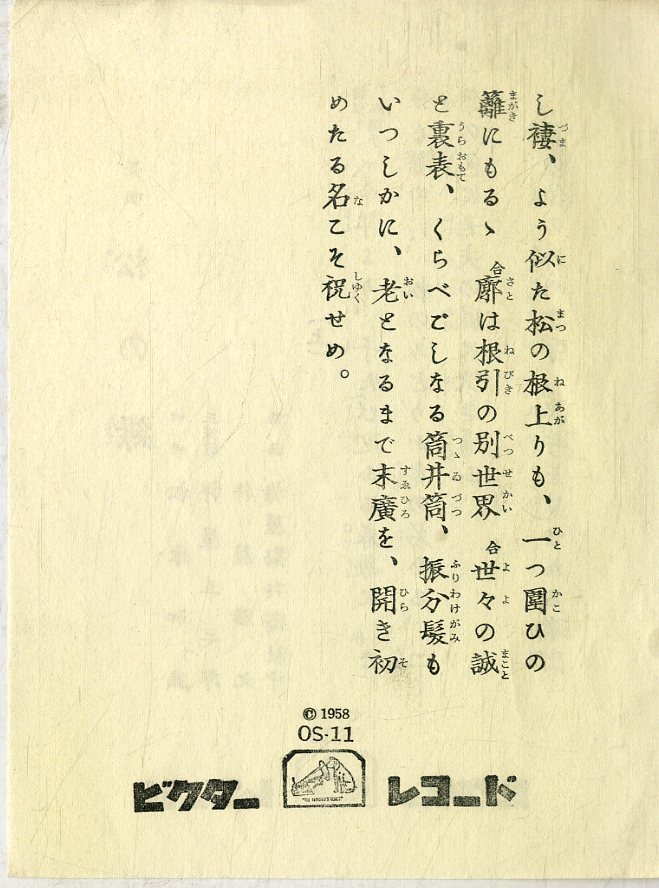 し褄、よう似た松の根上りも、一つ圍ひの
籬にもるゝ 合 廓は根引の別世界 合 世々の誠
と裏表、くらべごしなる筒井筒、振分髪も
いつしかに、老となるまで末廣を、開き初
めたる名こそ祝せめ。
© 1958
OS-11
ビクター レコード